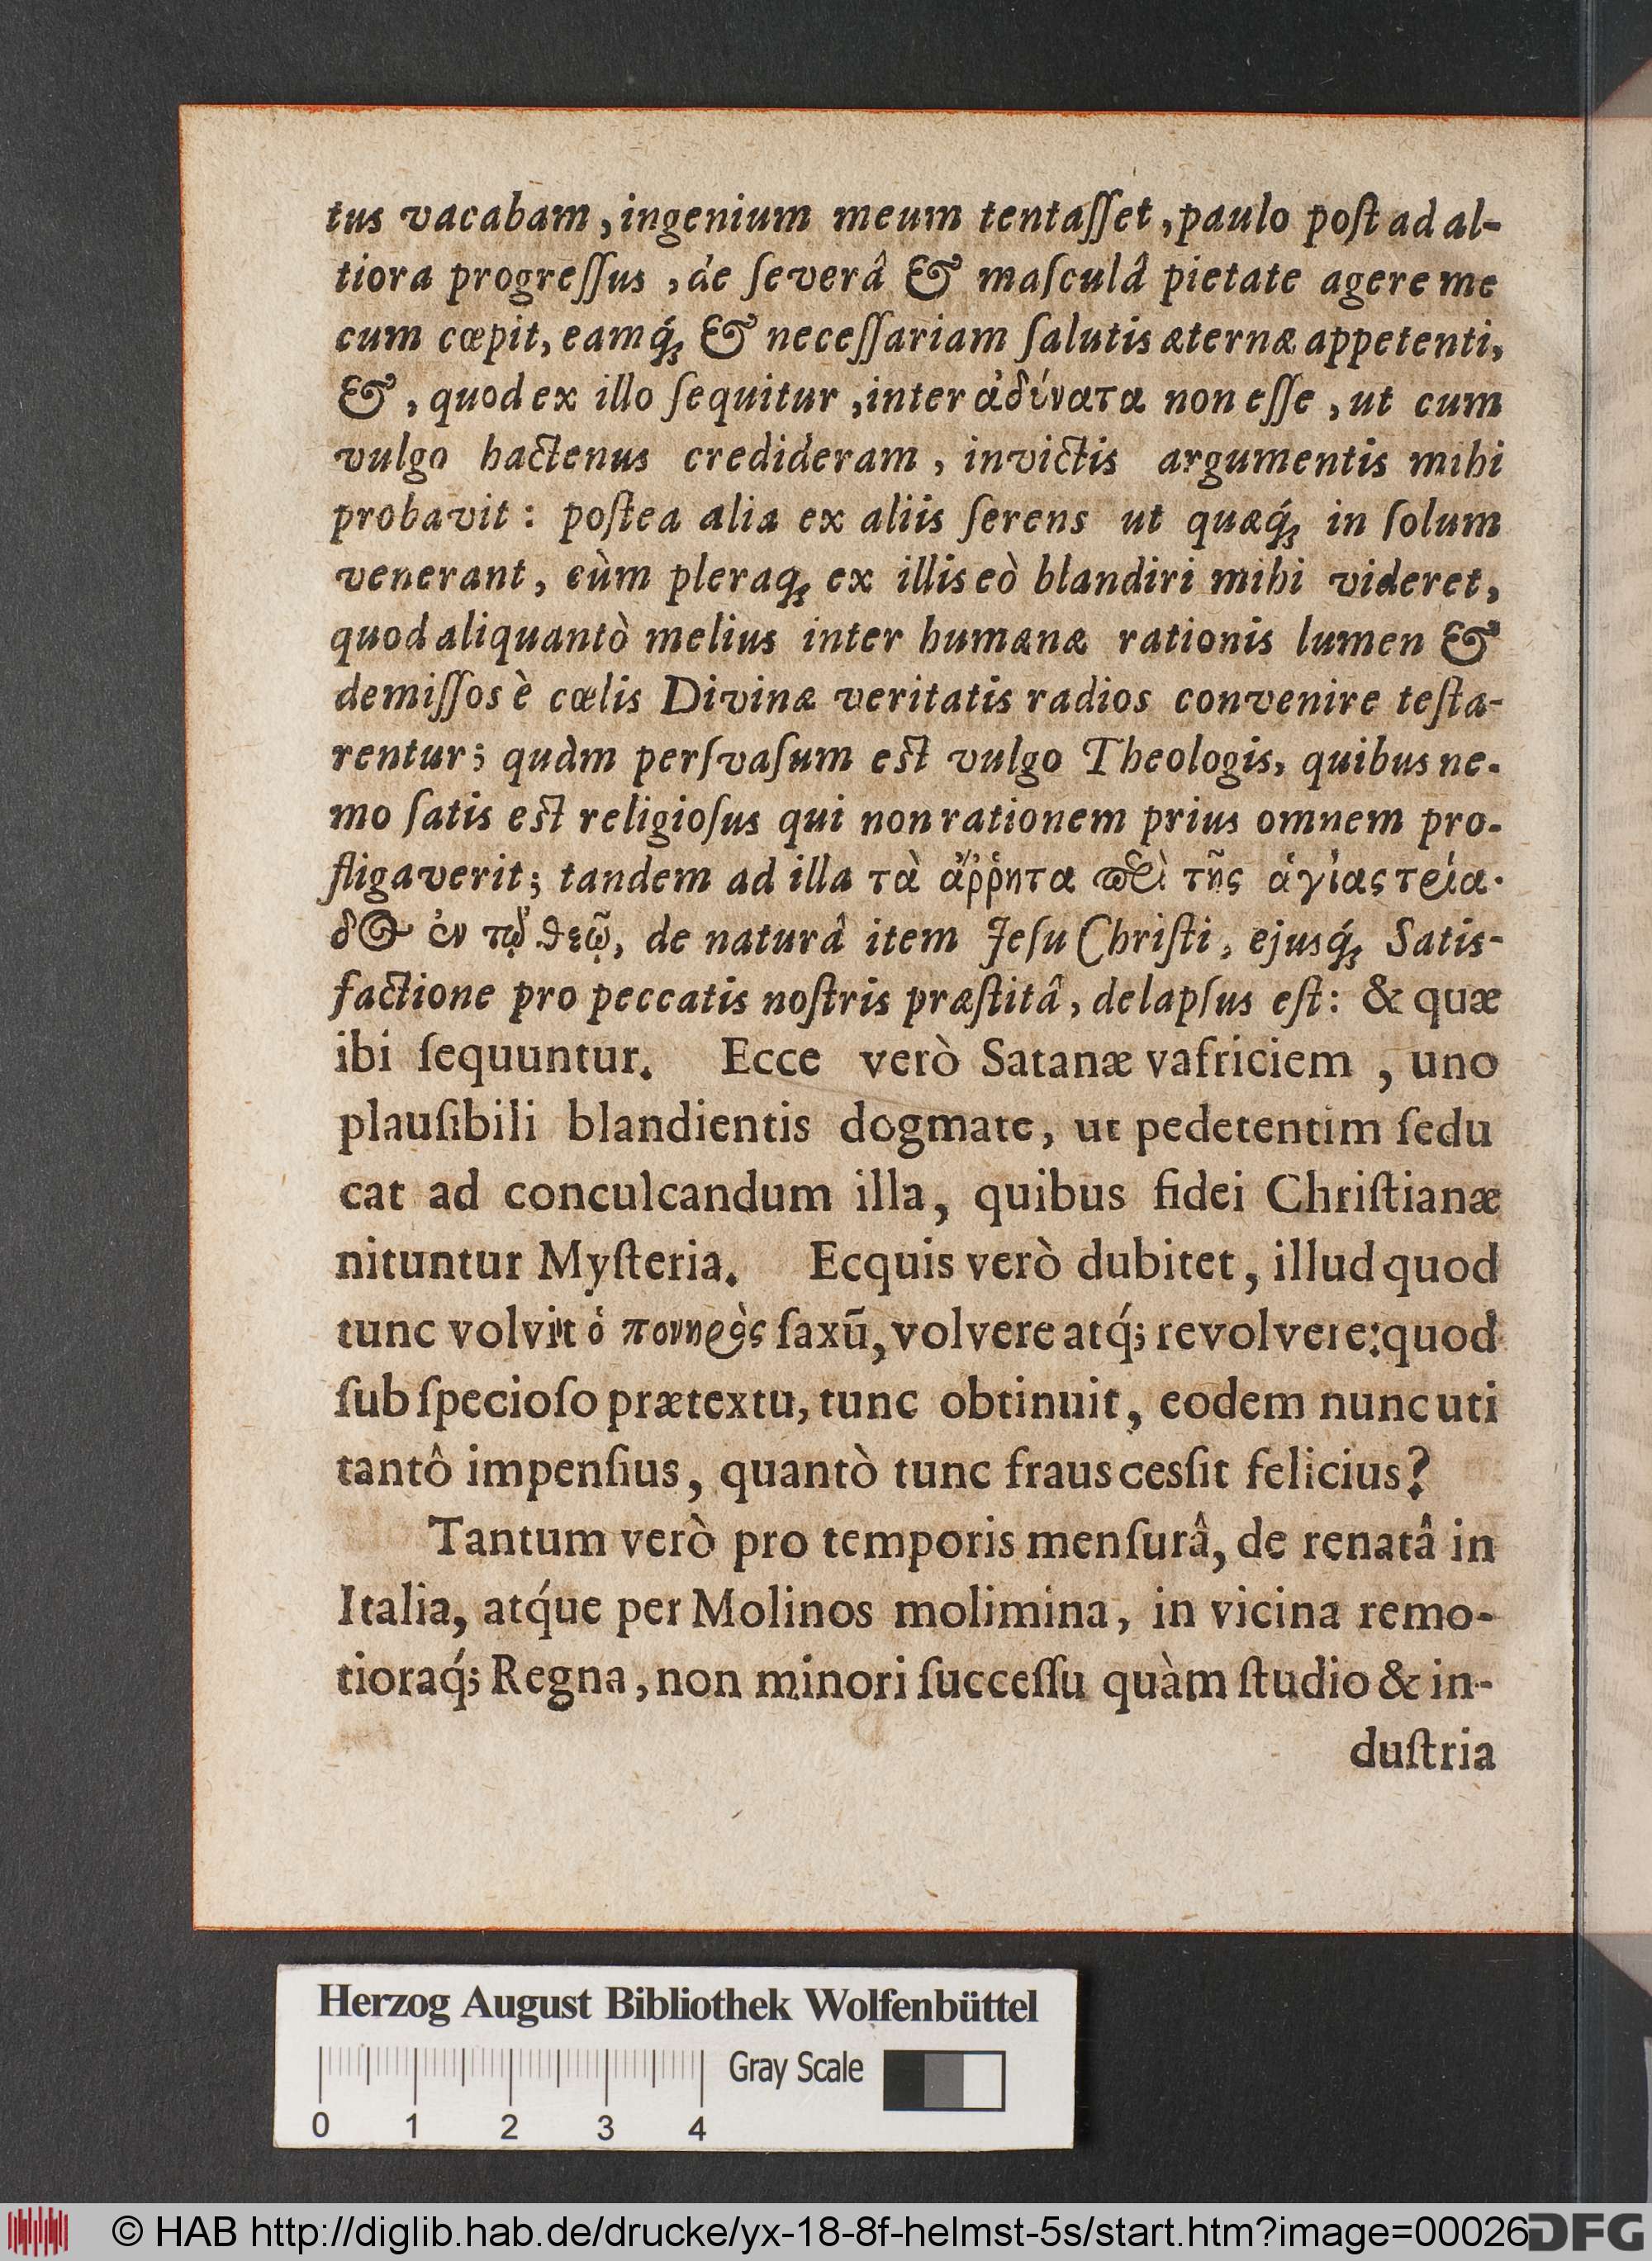 tus vacabam, ingenium meum tentaſſet, paulo poſt ad al-
tiora progreſſus, de ſeverâ & maſculâ pietate agere me
cum cœpit, eamq́; & neceſſariam ſalutis æternæ appetenti,
&, quod ex illo ſequitur, inter ἀδύνατα non eſſe, ut cum
vulgo hactenus credideram, invictis argumentis mihi
probavit: poſtea alia ex aliis ſerens ut quæq́; in ſolum
venerant, cùm pleraq; ex illis eò blandiri mihi videret,
quod aliquantò melius inter humanæ rationis lumen &
demiſſos è cœlis Divinæ veritatis radios convenire teſta-
rentur; quàm perſvaſum est vulgo Theologis, quibus ne-
mo ſatis est religioſus qui non rationem prius omnem pro-
fligaverit; tandem ad illa τὰ ἄῤῥητα περὶ τῆς ἁγίας τρεία-
δος ἐν τῷ θεῷ, de naturâ item Jeſu Chriſti, ejusq́; Satis-
factione pro peccatis noſtris præſtitâ, delapſus eſt: & quæ
ibi ſequuntur. Ecce verò Satanæ vafriciem, uno
plauſibili blandientis dogmate, ut pedetentim ſedu
cat ad conculcandum illa, quibus fidei Chriſtianæ
nituntur Myſteria. Ecquis verò dubitet, illud quod
tunc volvit ὁ πονηρὸς ſaxũ, volvere atq́; revolvere: quod
ſub ſpecioſo prætextu, tunc obtinuit, eodem nunc uti
tantô impenſius, quantò tunc fraus cesſit felicius?
Tantum verò pro temporis menſurâ, de renatâ in
Italia, atq́ue per Molinos molimina, in vicina remo-
tioraq́; Regna, non minori ſucceſſu quàm ſtudio & in-
duſtria
Herzog August Bibliothek Wolfenbüttel
Gray Scale
0 1 2 3 4
© HAB http://diglib.hab.de/drucke/yx-18-8f-helmst-5s/start.htm?image=00026
DFG